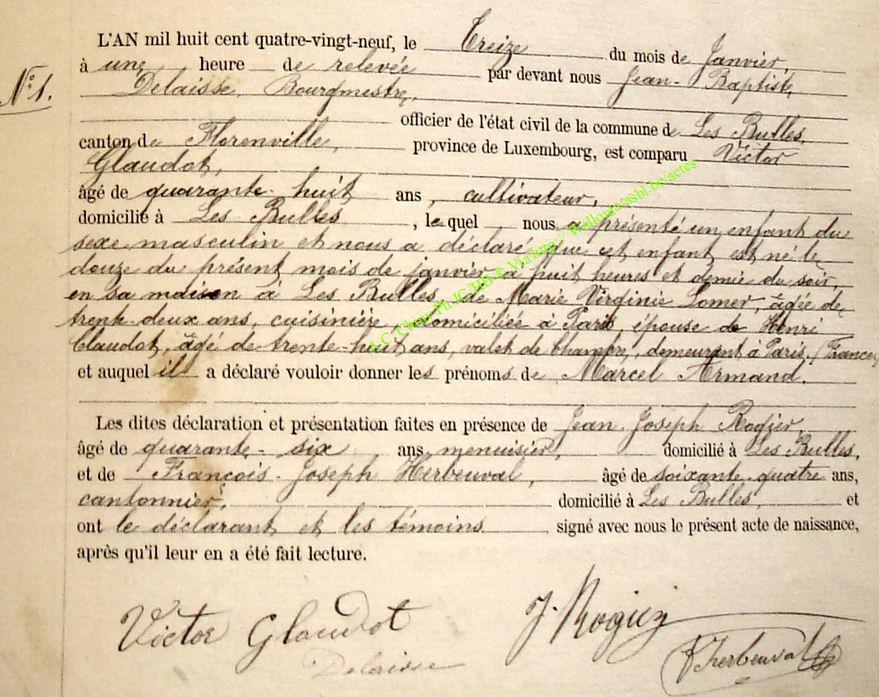 L'AN mil huit cent quatre-vingt-neuf, le Treize du mois de Janvier,
à une heure de relevée par devant nous Jean-Baptiste
N° 1. Delaisse, Bourgmestre,
officier de l'état civil de la commune de Les Bulles,
canton de Florenville, province de Luxembourg, est comparu Victor
Glaudot,
âgé de quarante-huit ans, cultivateur,
domicilié à Les Bulles, lequel nous a présenté un enfant du
sexe masculin et nous a déclaré que cet enfant est né le
douze du présent mois de janvier à huit heures et demie du soir,
en sa maison à Les Bulles, de Marie Virginie Lomer, âgée de
trente deux ans, cuisinière, domiciliée à Paris, épouse de Henri
Claudot, âgé de trente-huit ans, valet de chambre, demeurant à Paris, (France,)
et auquel il a déclaré vouloir donner les prénoms de Marcel Armand.
Les dites déclaration et présentation faites en présence de Jean Joseph Rogier,
âgé de quarante-six ans, menuisier, domicilié à Les Bulles,
et de François-Joseph Herbeuval, âgé de soixante-quatre ans,
cantonnier, domicilié à Les Bulles, et
ont le déclarant et les témoins signé avec nous le présent acte de naissance,
après qu'il leur en a été fait lecture.
Victor Glaudot J. Rogier
Delaisse F Herbeuval